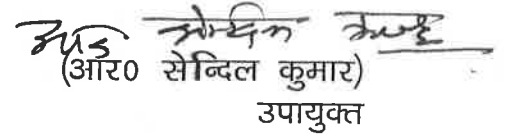 (आर० सेन्दिल कुमार)
उपायुक्त